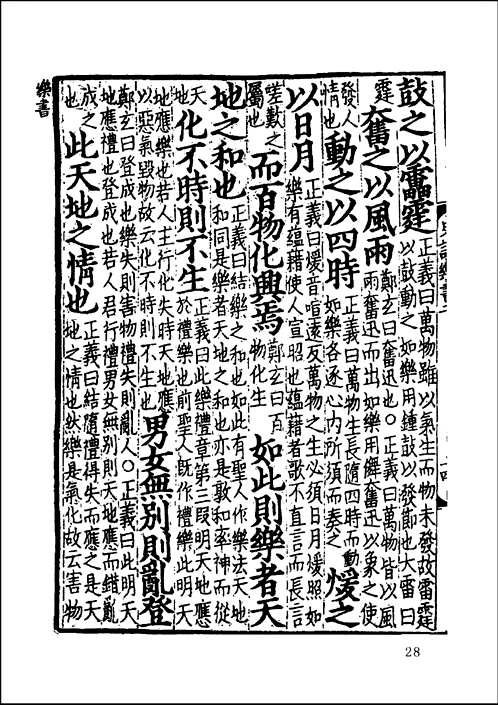 鼓之以靁霆正義曰萬物雖以氣生而物未發故雷霆以鼓動之如樂用鍾鼓以發節也大雷曰
霆奮之以風雨鄭玄曰奮迅也○正義曰萬物皆以風雨奮迅而出如樂用儛奮迅以象之使
發人情也動之以四時正義曰萬物生長隨四時而動如樂各逐心內所須而奏之煖之
以日月正義曰煖音喧遠反萬物之生必須日月煖照如樂有蘊藉使人宣昭也蘊藉者歌不直言而長言
嗟歎之屬也而百物化興焉鄭玄曰百物化生如此則樂者天
地之和也正義曰結樂之和也如此有聖人作樂法天地和同是樂者天地之和也亦是敦和率神而從
天地化不時則不生正義曰此樂禮章第三段明天地應於禮樂也前聖人既作禮樂此明天
地應樂也若人主行化失時天地應以惡氣毀物故云化不時則不生也男女無別則亂登
鄭玄曰登成也樂失則害物禮失則亂人○正義曰此明天地應禮也登成也若人君行禮男女無別則天地應而錯亂
成之也此天地之情也正義曰結隨禮得失而應之是天地之情也然樂是氣化故云害物
樂書
28